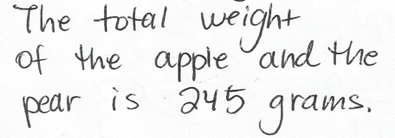 The total weight
of the apple and the
pear is 245 grams.